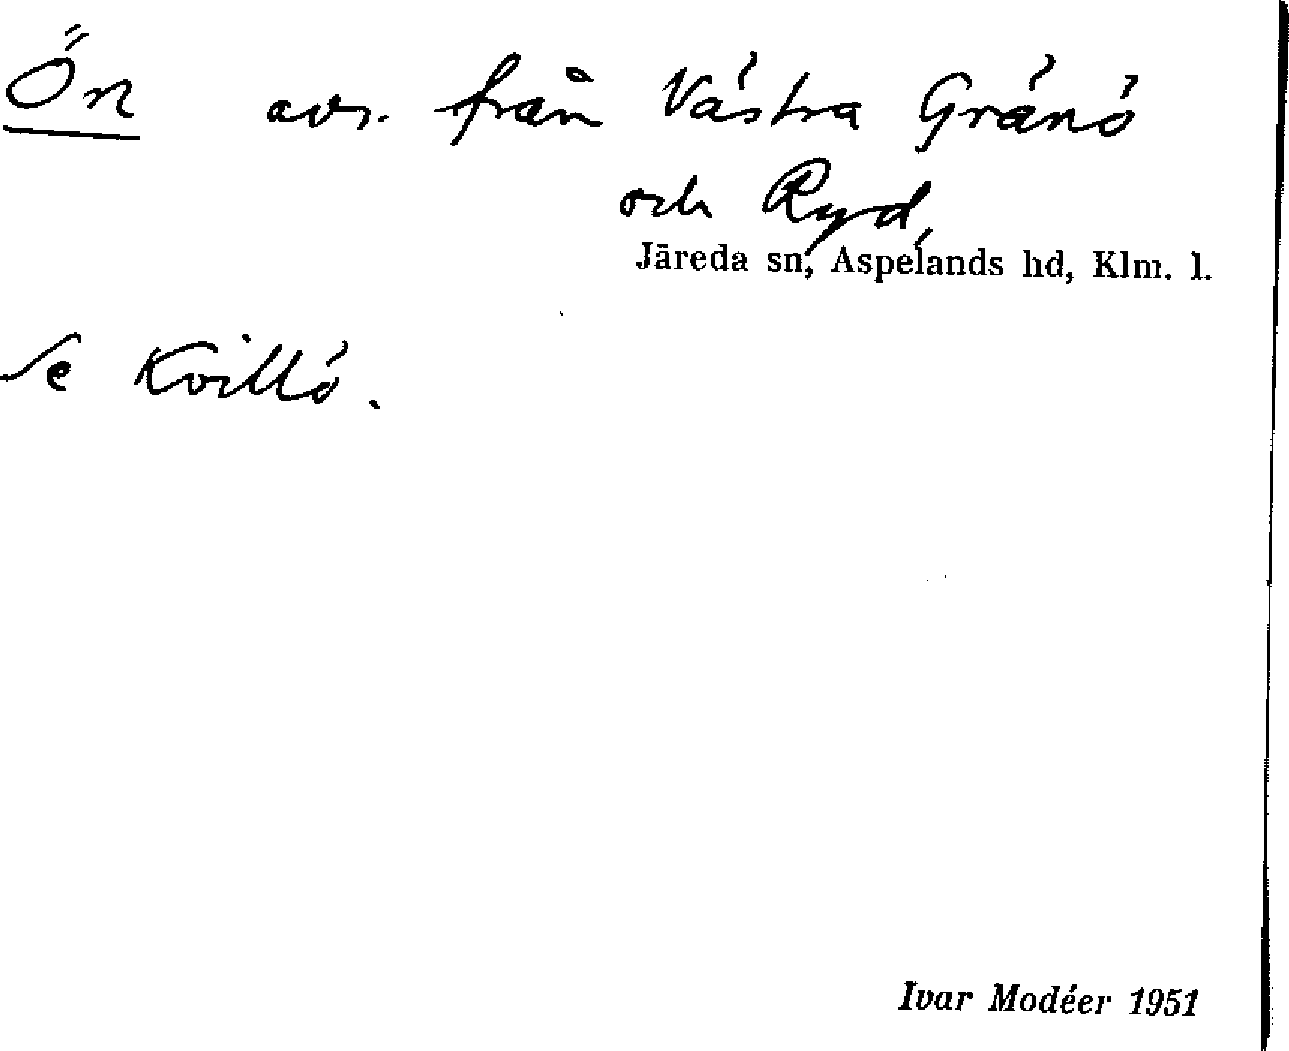 Ön avs. från Västra Gränö
och Ryd,
Järeda sn, Aspelands hd, Klm. l.
Se Kvillö.
Ivar Modéer 1951